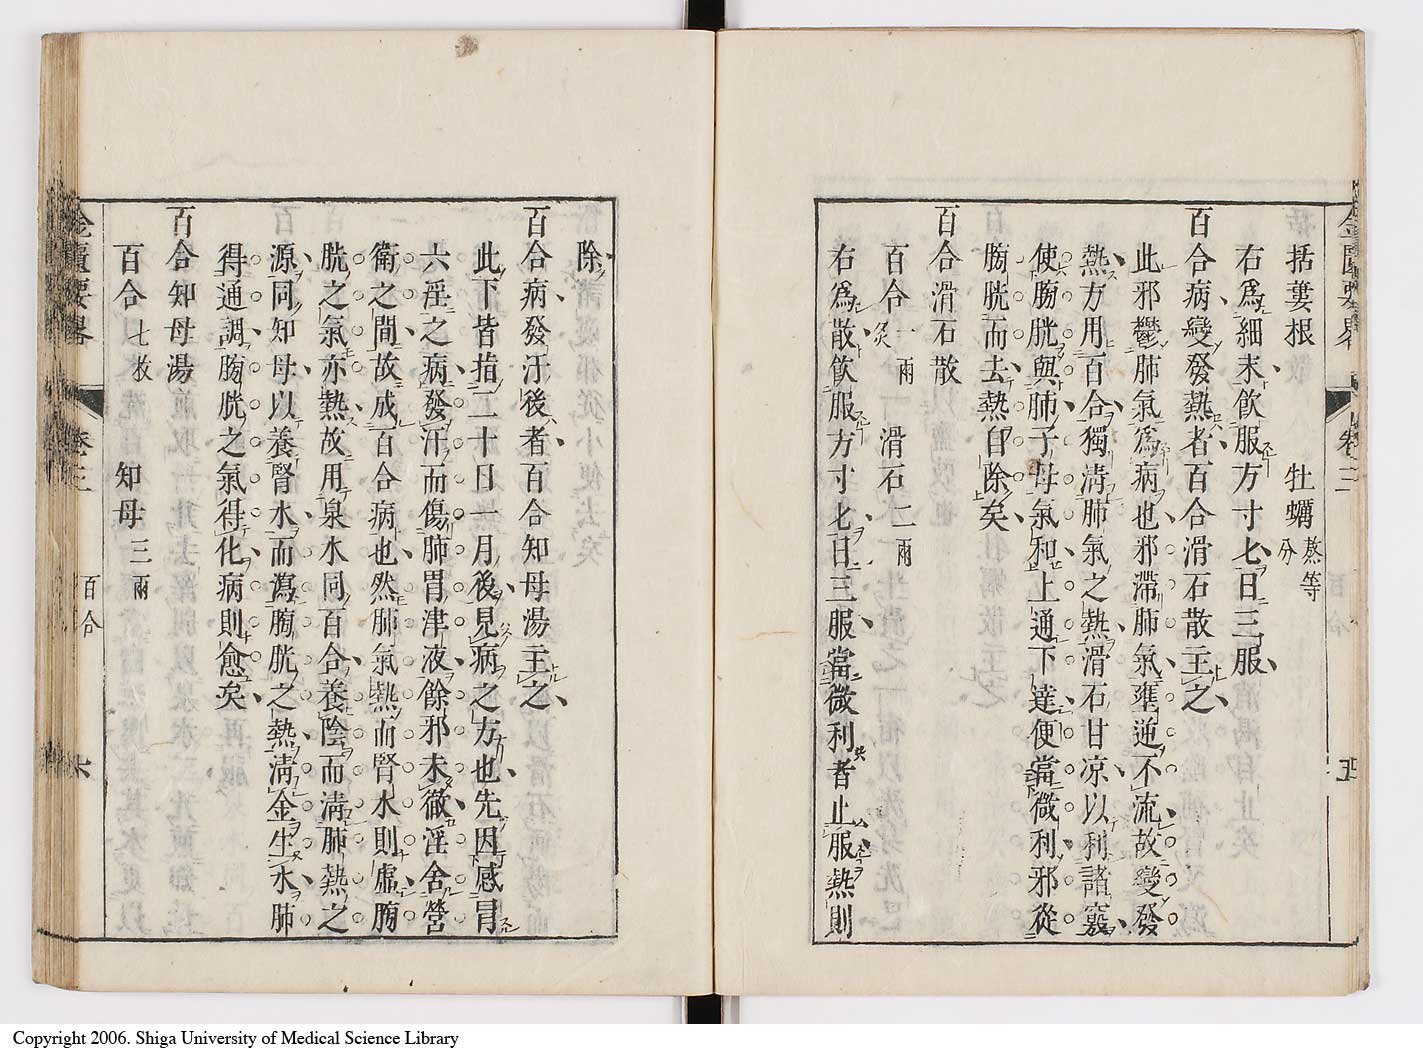 金匱要畧 卷三 五
括蔞根 牡蠣熬等分
右爲細末飲服方寸匕日三服
百合病變發熱者百合滑石散主之
此邪鬱肺氣爲病也邪滯肺氣壅逆不流故變發
熱方用百合獨淸肺氣之熱滑石甘凉以利諸竅
使膀胱與肺子母氣和上通下達便當微利邪從
膀胱而去熱自除矣
百合滑石散
百合一兩炙 滑石二兩
右爲散飲服方寸匕日三服當微利者止服熱則
除
百合病發汗後者百合知母湯主之
此下皆指二十日一月後見病之方也先因感冒
六淫之病發汗而傷肺胃津液餘邪未徹淫舍營
衛之間故成百合病也然肺氣熱而腎水則虛膀
胱之氣亦熱故用泉水同百合養陰而淸肺熱之
源同知母以養腎水而瀉膀胱之熱淸金生水肺
得通調膀胱之氣得化病則愈矣
百合知母湯
百合七枚 知母三兩
金匱要畧 卷三 百合 六
Copyright 2006. Shiga University of Medical Science Library